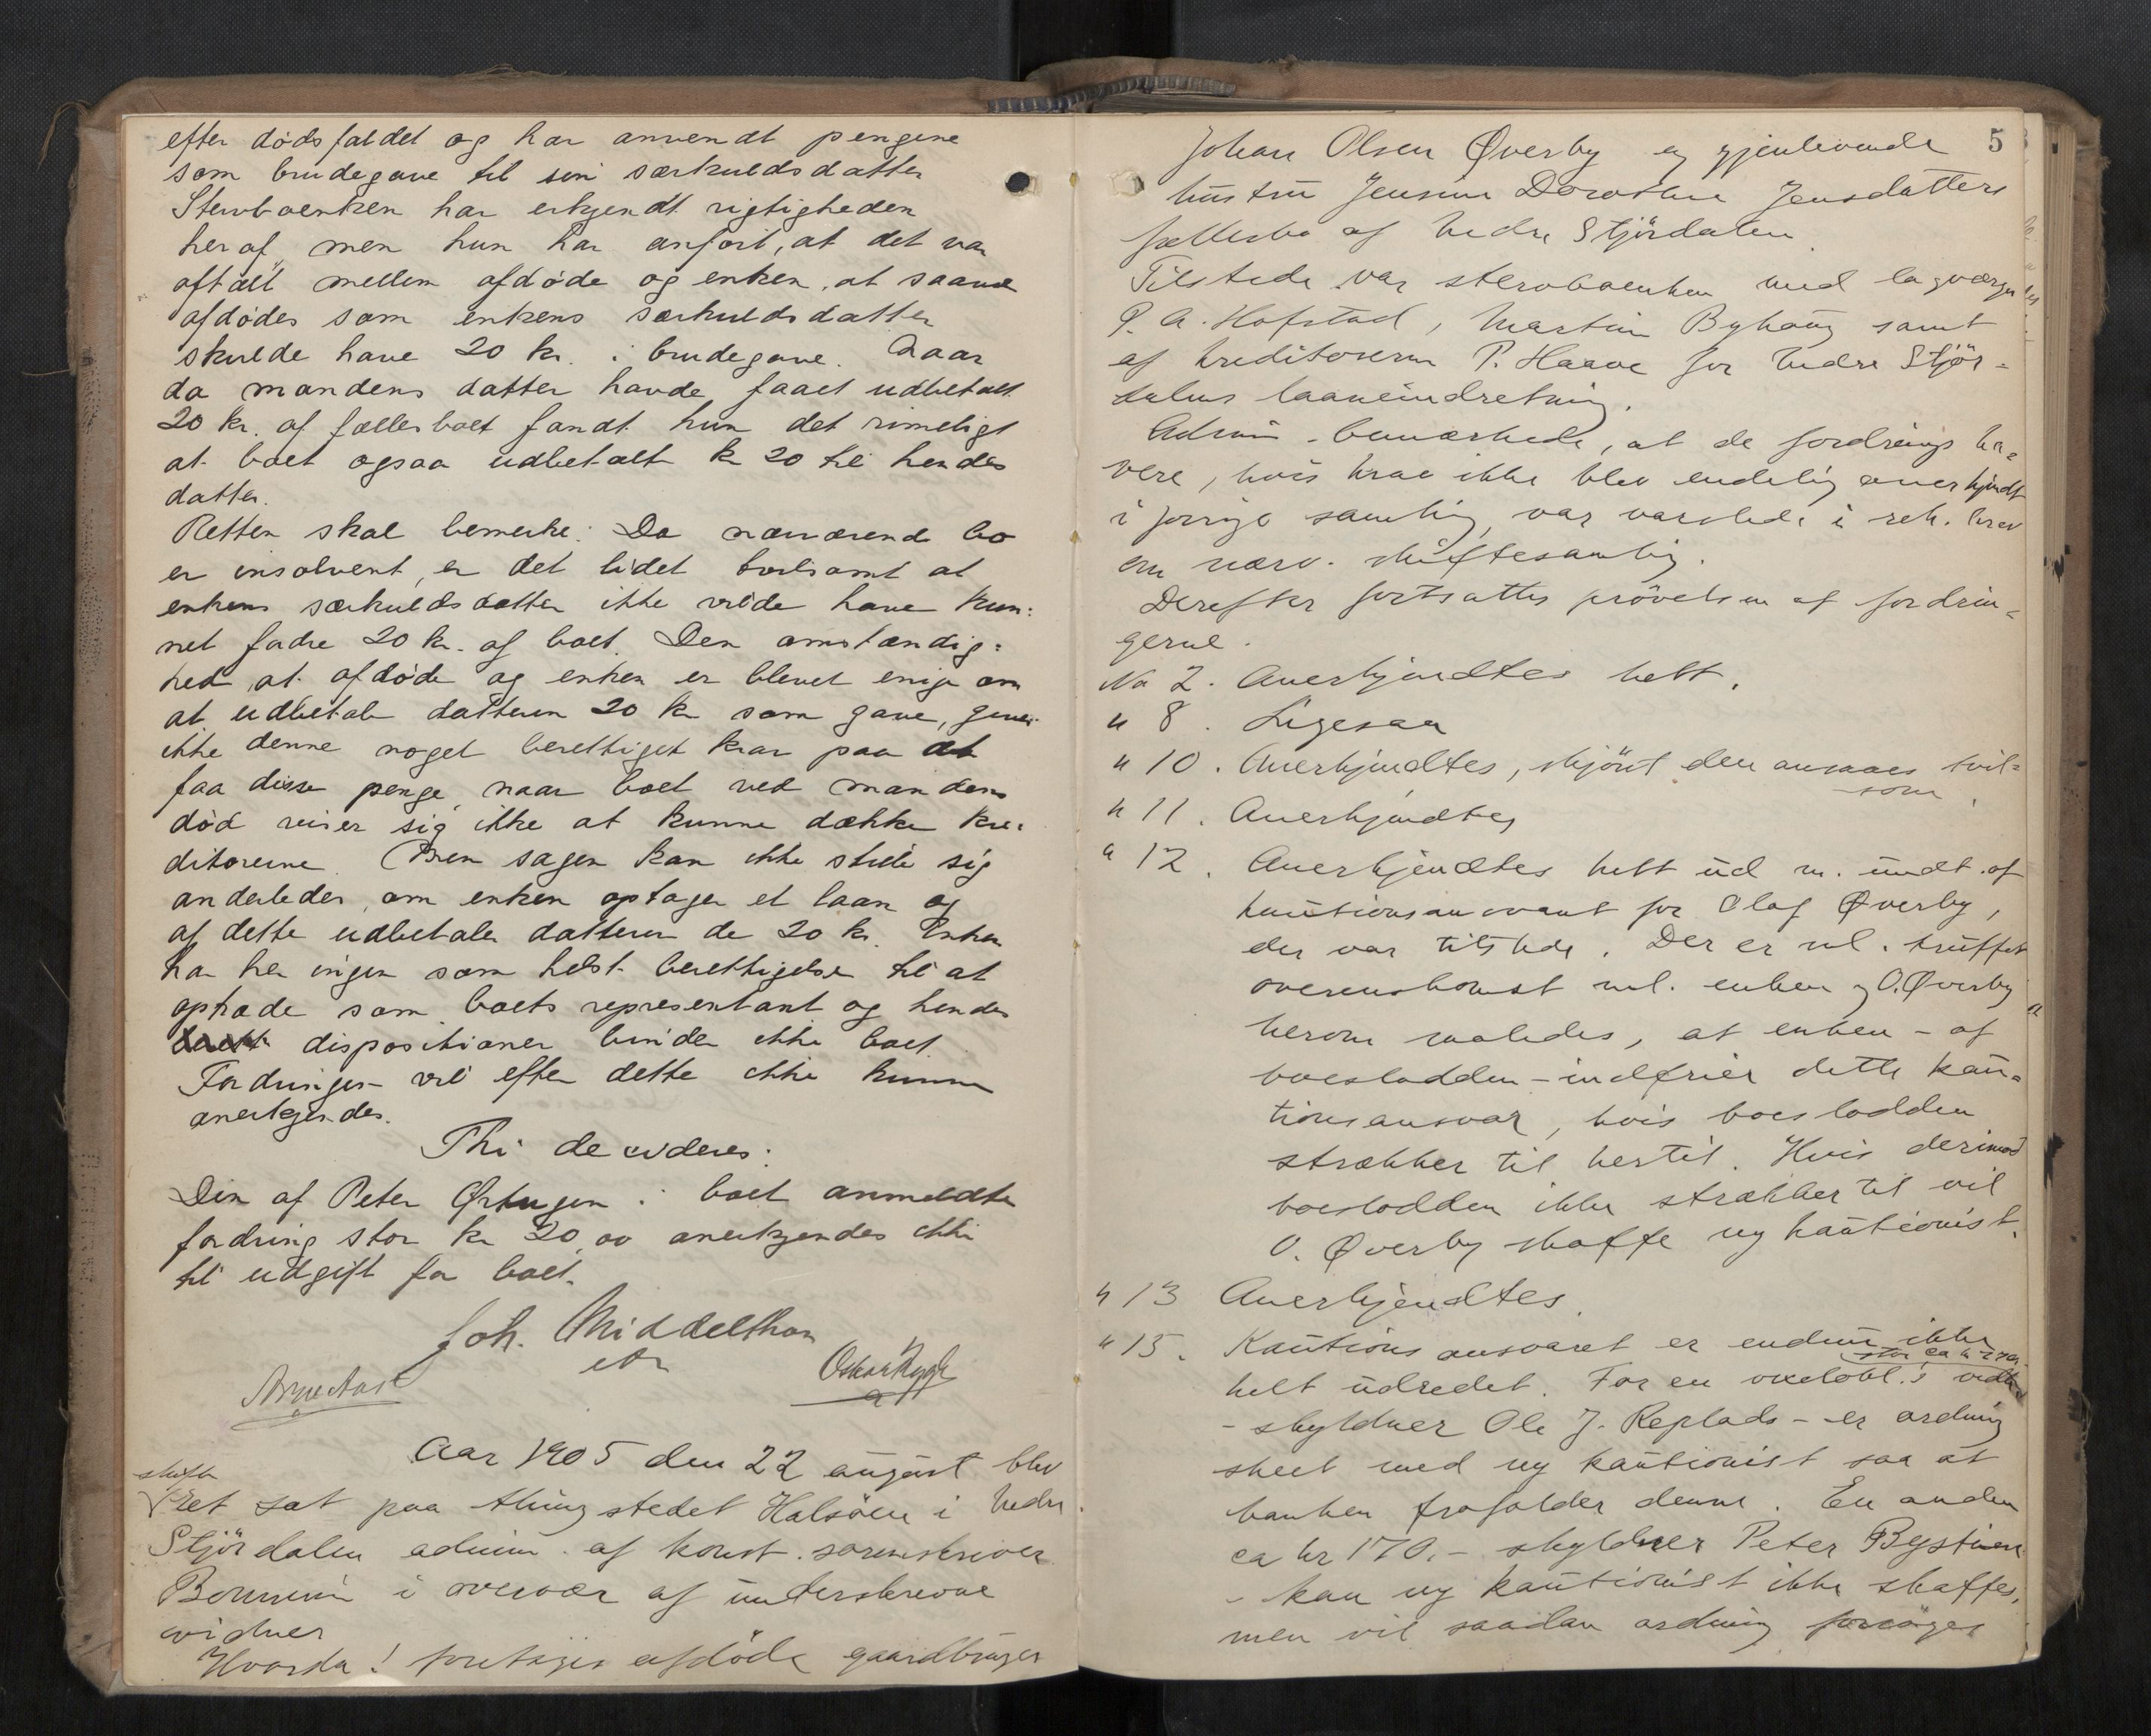 efter dødsfaldet og har anvendt pengene
som brudegave til sin særkuldsdatter
Stervboenken har erkjendt rigtigheden
heraf, men hun har anført, at det var
aftalt mellem afdøde og enken, at saavel
afdødes som enkens særkuldsdatter
skulde have 20 kr. i brudegave. Naar
da mandens datter havde faaet udbetalt
20 kr. af fællesboet fandt hun det rimeligt
at boet ogsaa udbetalt kr 20 til hendes
datter.
Retten skal bemerke: Da nærværende bo
er insolvent, er det lidet at
enkens særkuldsdatter ikke vilde have kun:
net fordre 20 kr. af boet. Den omstændig:
hed, at afdøde og enken er blevet enige om
at udbetale datteren 20 kr som gave, giver
ikke denne noget berettiget krav paa at
faa disse penge, naar boet ved mandens
død viser sig ikke at kunne dække kre:
ditorerne. Men sagen kan ikke stille sig
anderledes, om enken optager et laan og
af dette udbetaler datteren de 20 kr. Enken
har her ingen som helst berettigelse til at
optræde som boets representant og hendes
dispositioner binder ikke boet.
Fordringen vil efter dette ikke kunne
anerkjendes.
Thi decideres:
Den af Peter Ørtugen i boet anmeldte
fordring stor kr 20,00 anerkjendes ikke
til udgift for boet.
Joh. Middelthon
Oskar Rygh
Aar 1905 den 22 august blev
skifte
ret sat paa thingstedet Halsöen i Nedre
Stjördalen admin. af konst. sorenskriver
i overvær af underskrevne
vidner
Hvorda! foretoges afdöde gaardbruger
5
Johan Olsen Øverby og gjenlevende
hustru Jensine Dorothea Jensdatters
fællesbo af Nedre Stjördalen.
Tilstede var stervboenken med lagværge
P. A. Hofstad, Martin Byhaug samt
af kreditorerne P. Haave for Nedre Stjör=
dalens laaneindretning.
Admin. bemærkede, at de fordrings ha=
vere, hvis krav ikke blev endelig anerkjendt
i forrige samling, var varslede i rek. brev
om nærv. skiftesamling.
Derefter fortsattes prövelsen af fordrin=
gerne.
No 2. Anerkjendtes helt.
" 8. Ligesaa
" 10. Anerkjendtes, skjönt den ansaaes tvil=
som.
" 11. Anerkjendtes
" 12. Anerkjendtes helt ud m. undt. af
kautionsansvaret for Olaf Øverby,
der var tilstede. Der er ml. truffet
overenskomst ml. enken og O. Øverby
herom saaledes, at enken - af
boeslodden - indfrier dette kau=
tionsansvar, hvis boeslodden
strækker til hertil. Hvis derimod
boeslodden ikke strækker til vil
O. Øverby skaffe ny kautionist.
" 13 Anerkjendtes.
" 15. Kautionsansvaret er endnu ikke
helt udredet. For en vexelobl.s
- skyldner Ole J. Replads - er ordning
skeet med ny kautionist saa at
banken frafalder denne. En anden
ca kr 170.- skyldner Peter Bystinen
- kan ny kautionist ikke skaffes,
men vil saadan ordning forsöges